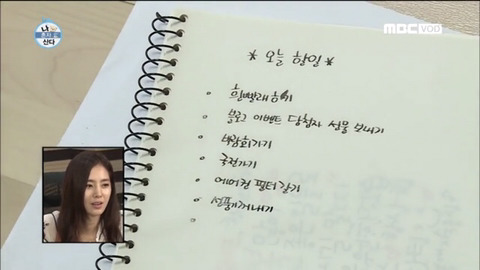 나 혼자 산다
MBC VOD
* 오늘 할일 *
흰빨래하기
블로그 이벤트 당첨자 선물 보내기
박람회가기
국전가기
에어컨 필터갈기
선풍기꺼내기